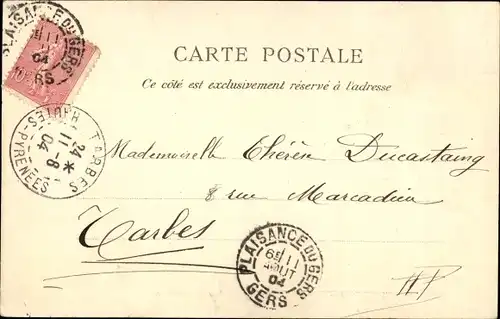 PLAISANCE DU GERS
11
04
GERS
10
CARTE POSTALE
Ce côté est exclusivement réservé à l'adresse
TARBES
24
11-8
04
HAUTES-PYRÉNÉES
Mademoiselle Thérèse Ducastaing
8 rue Marcadieu
Tarbes
PLAISANCE DU GERS
11
AOUT
04
GERS
HP